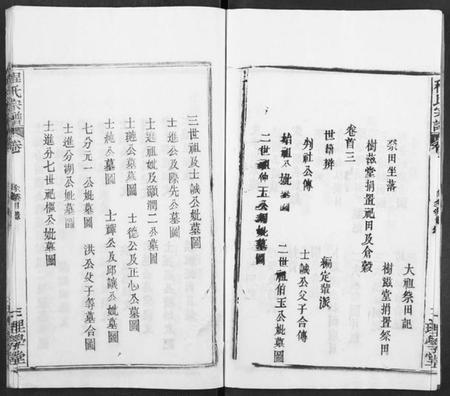 大祖祭田記
祭田坐落 樹滋堂捐置祭田
樹滋堂捐置祀田及倉穀
卷首三
世系辨 編定輩派
列社公傳 士誠公父子合傳
始祖公妣墓圖 二世祖伯玉公妣墓圖
二世祖仲玉公妣墓圖
三世祖及士誠公妣墓圖
士進公及際先公墓圖
士進祖妣及顯潤二公墓圖
士璉公墓圖 士德公及正心公墓圖
士進公墓圖 士輝公及邱讓公妣墓圖
七分元一公妣墓圖 洪公父子等墓合圖
士進分湖公妣墓圖
士進分七世祀樞公妣墓圖
程氏宗譜
卷
三
理學堂
程氏宗譜
卷
理學堂